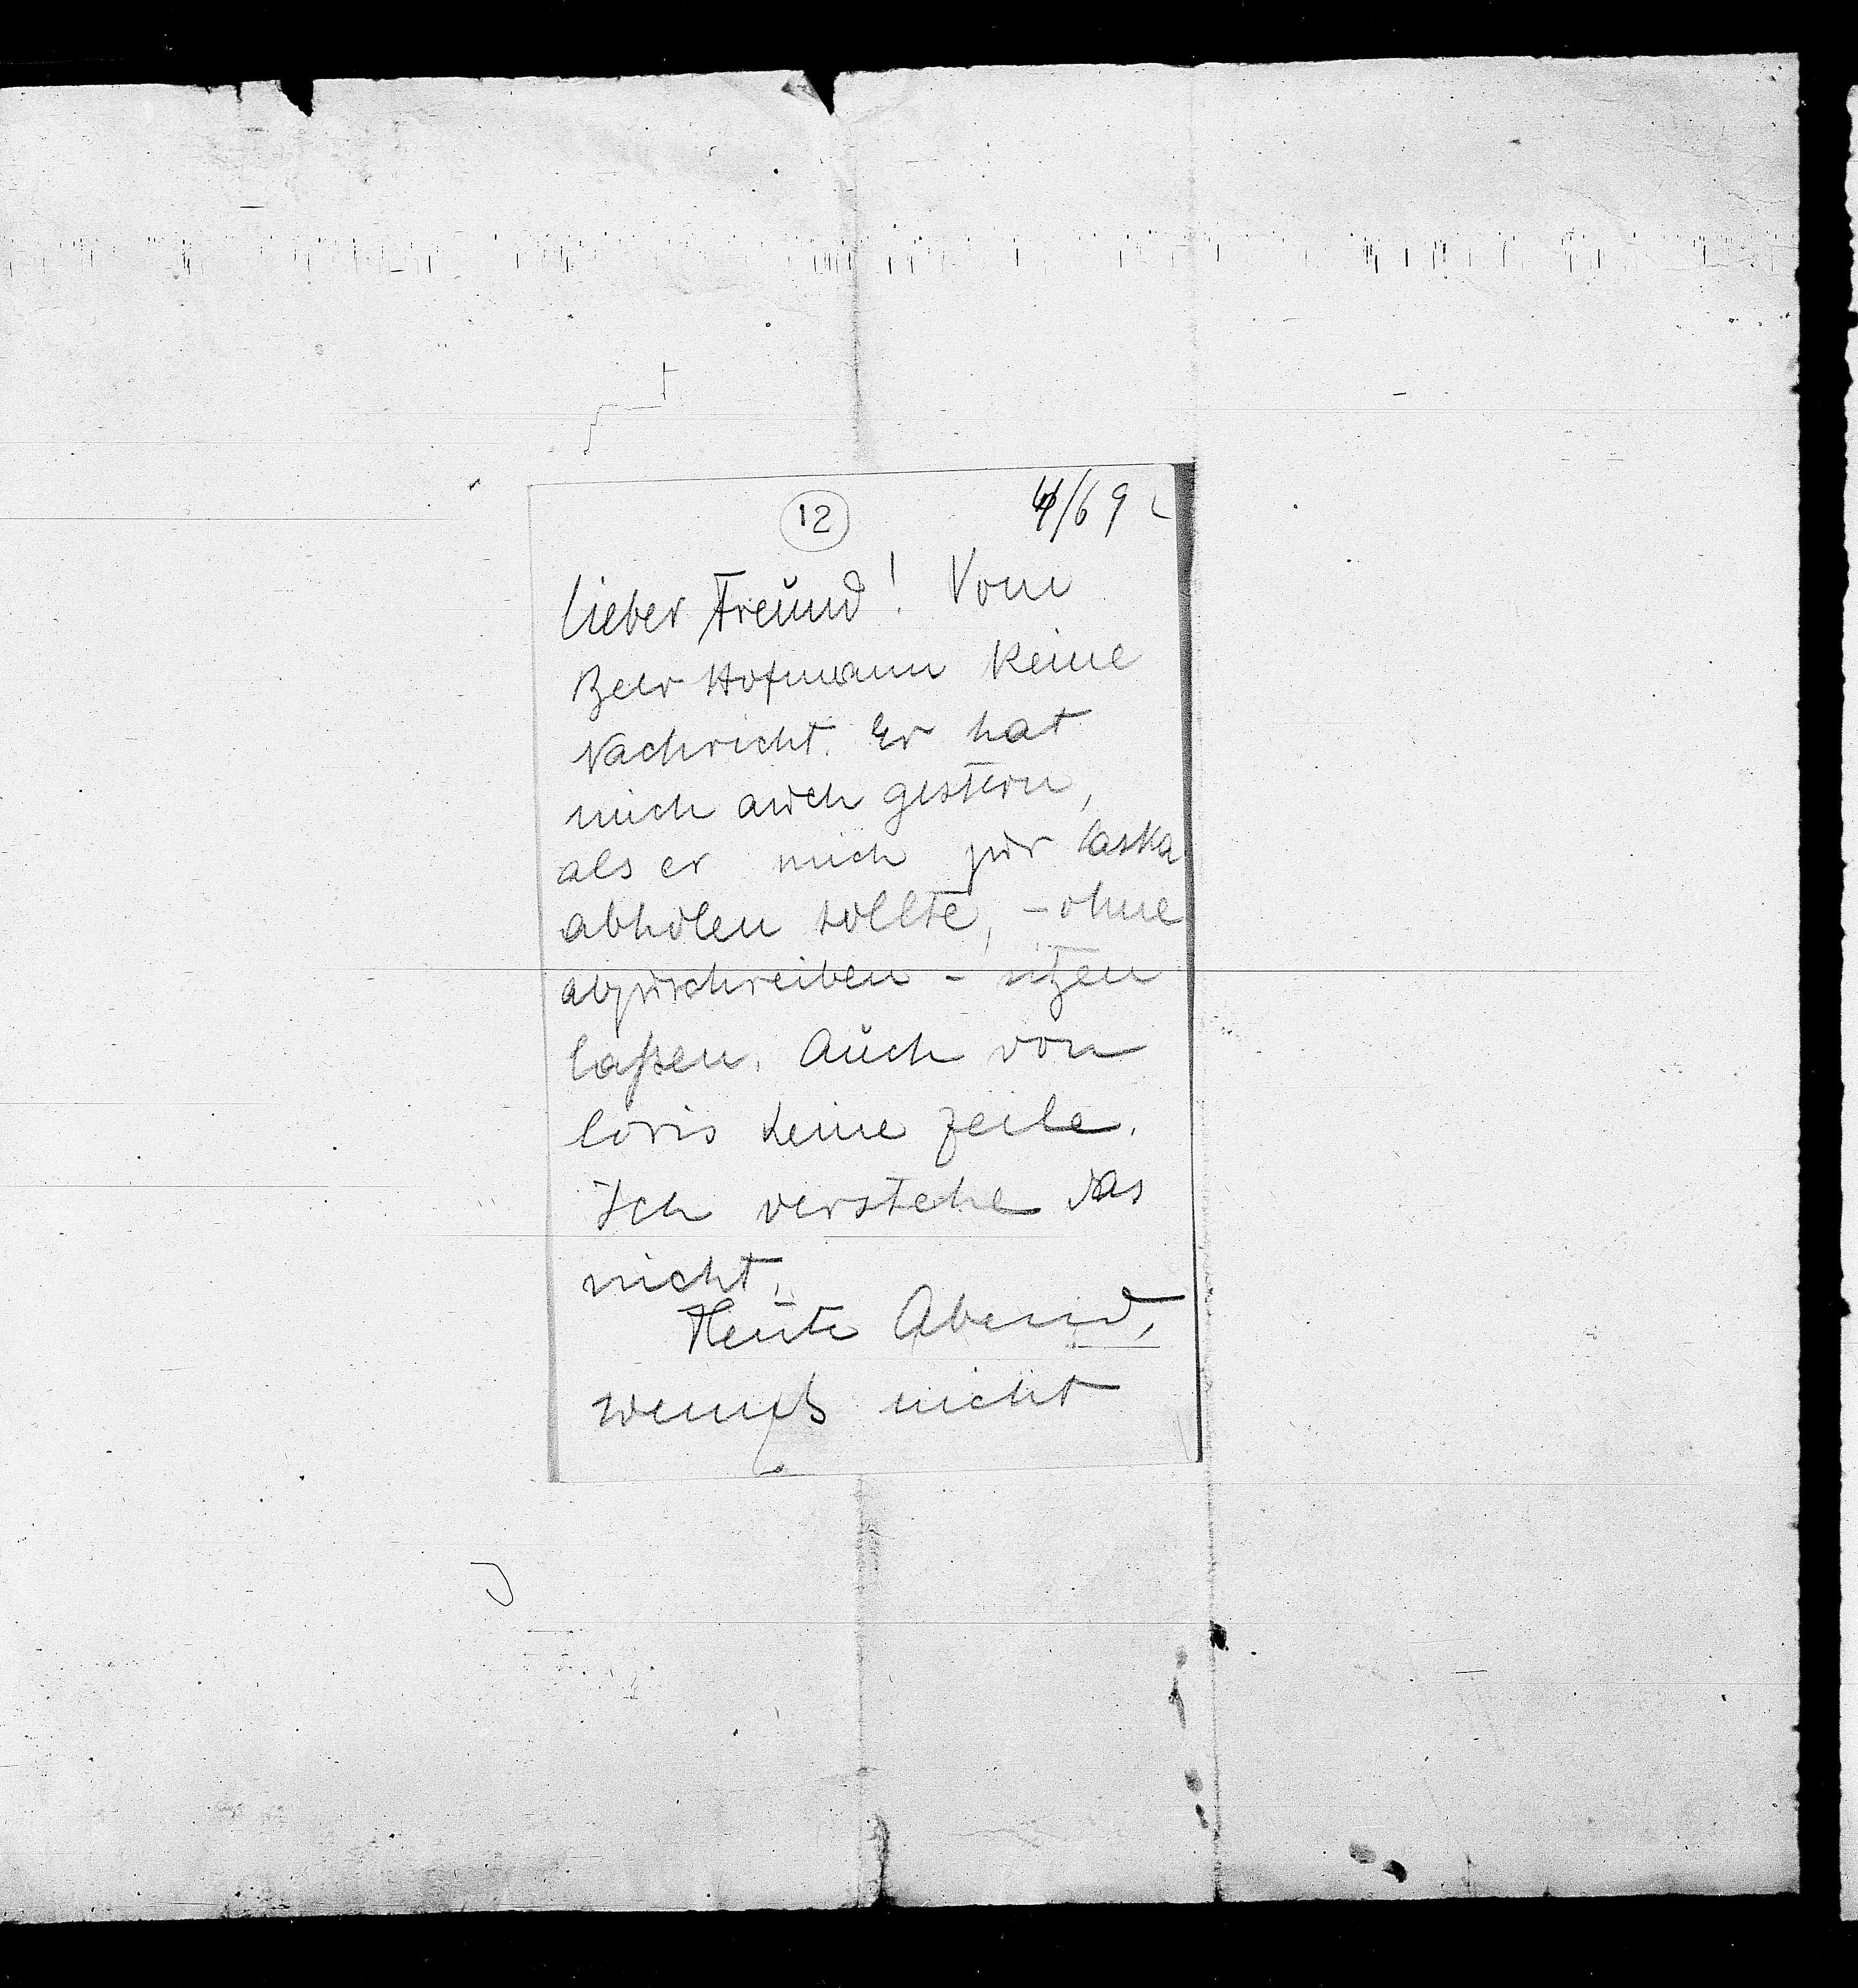 12
4/6 92
Lieber Freund! Vom
Beer Hofmann keine
Nachricht. Er hat
mich auch gestern,
als er mich zur Laska
abholen sollte, – ohne
abzuschreiben – sitzen
laßen. Auch von
Loris keine Zeile.
Ich verstehe das
nicht.
Heute Abend,
wenn's nicht